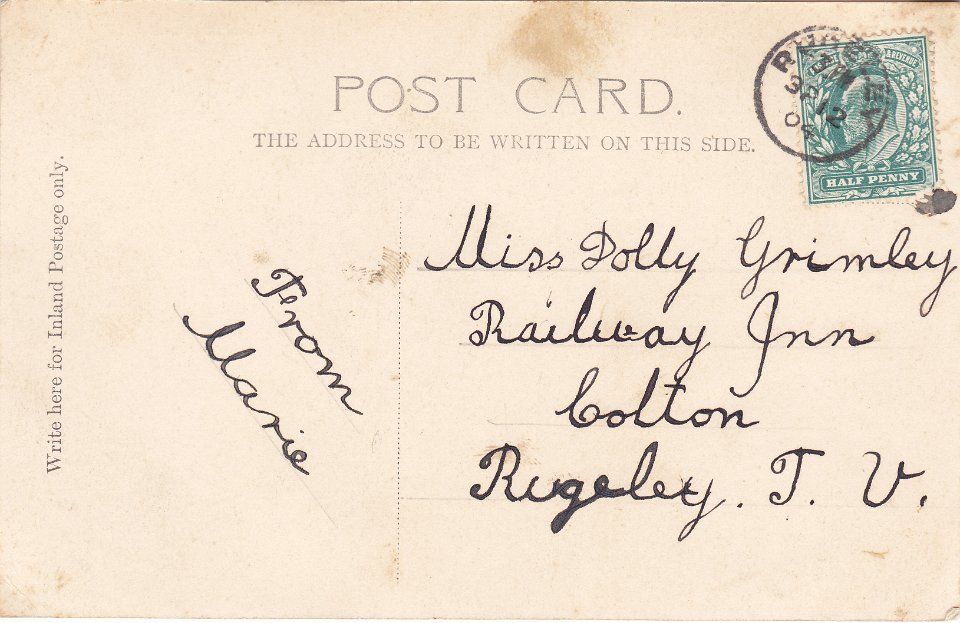 POST CARD.
THE ADDRESS TO BE WRITTEN ON THIS SIDE.
Write here for Inland Postage only.
From
Marie
Miss Dolly Grimley
Railway Inn
Colton
Rugeley. T. V.
RUGELEY
SP 12
& REVENUE
HALF PENNY